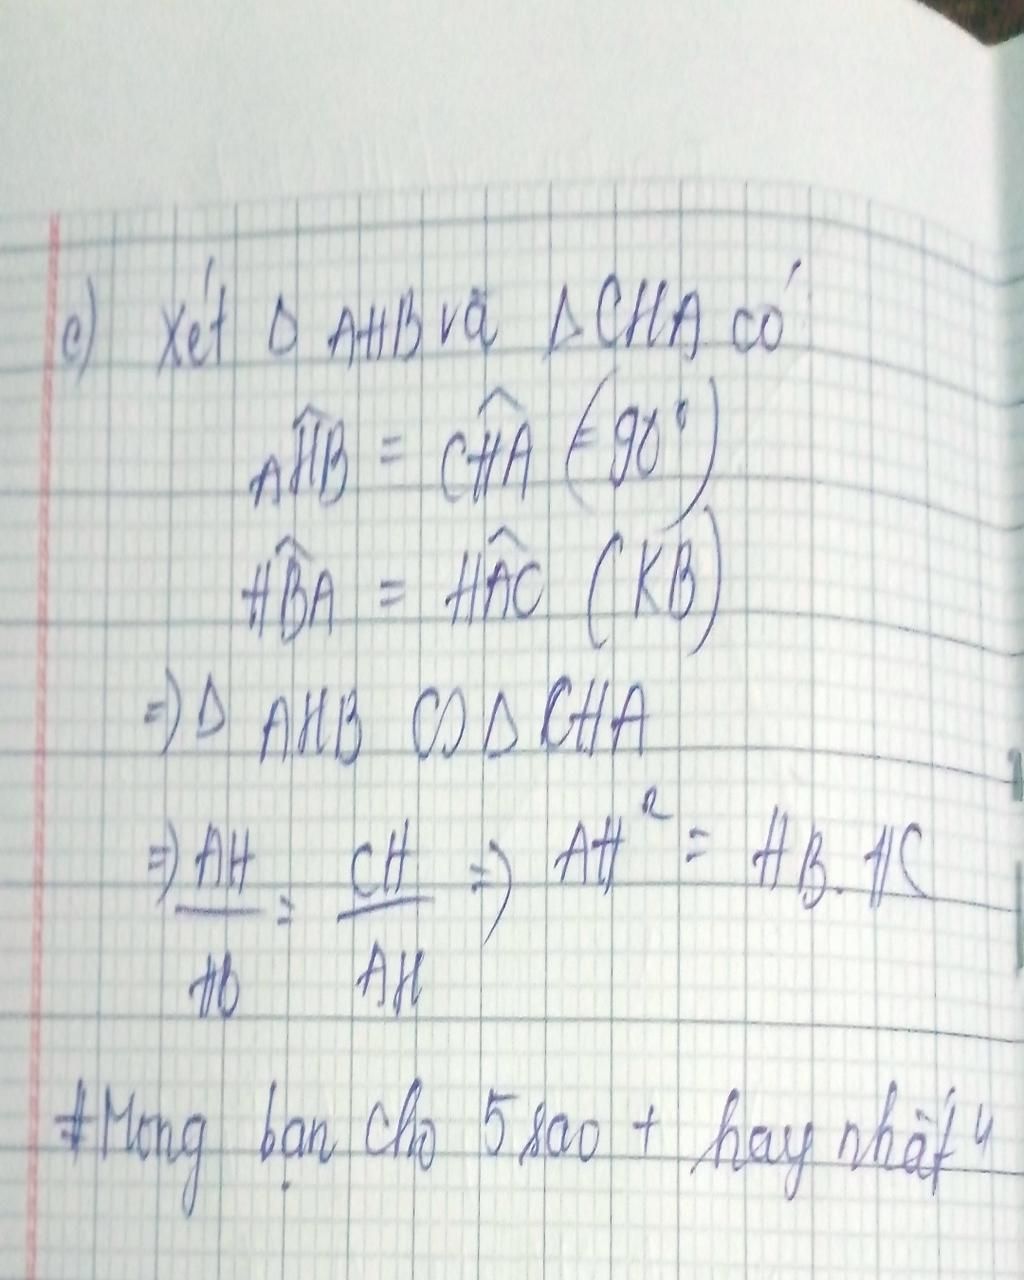 c) Xét Δ AHB và Δ CHA có
AĤB = CĤA (= 90°)
HB̂A = HÂC (KB)
=) Δ AHB ∽ Δ CHA
=) AH/HB = CH/AH =) AH² = HB.HC
#Mong bạn cho 5 sao + hay nhất "